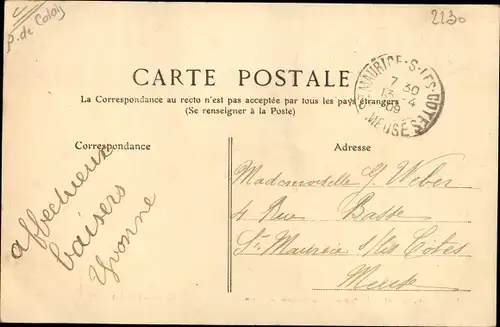 P. de Calais
2230
ST MAURICE-S-LES-COTES
7 30
13 -4
09
MEUSE
CARTE POSTALE
La Correspondance au recto n'est pas acceptée par tous les pays étrangers
(Se renseigner à la Poste)
Correspondance
affectueux
baisers
Yvonne
Adresse
Mademoiselle G. Weber
4 Rue Basse
St Maurice s/les Côtes
Meuse